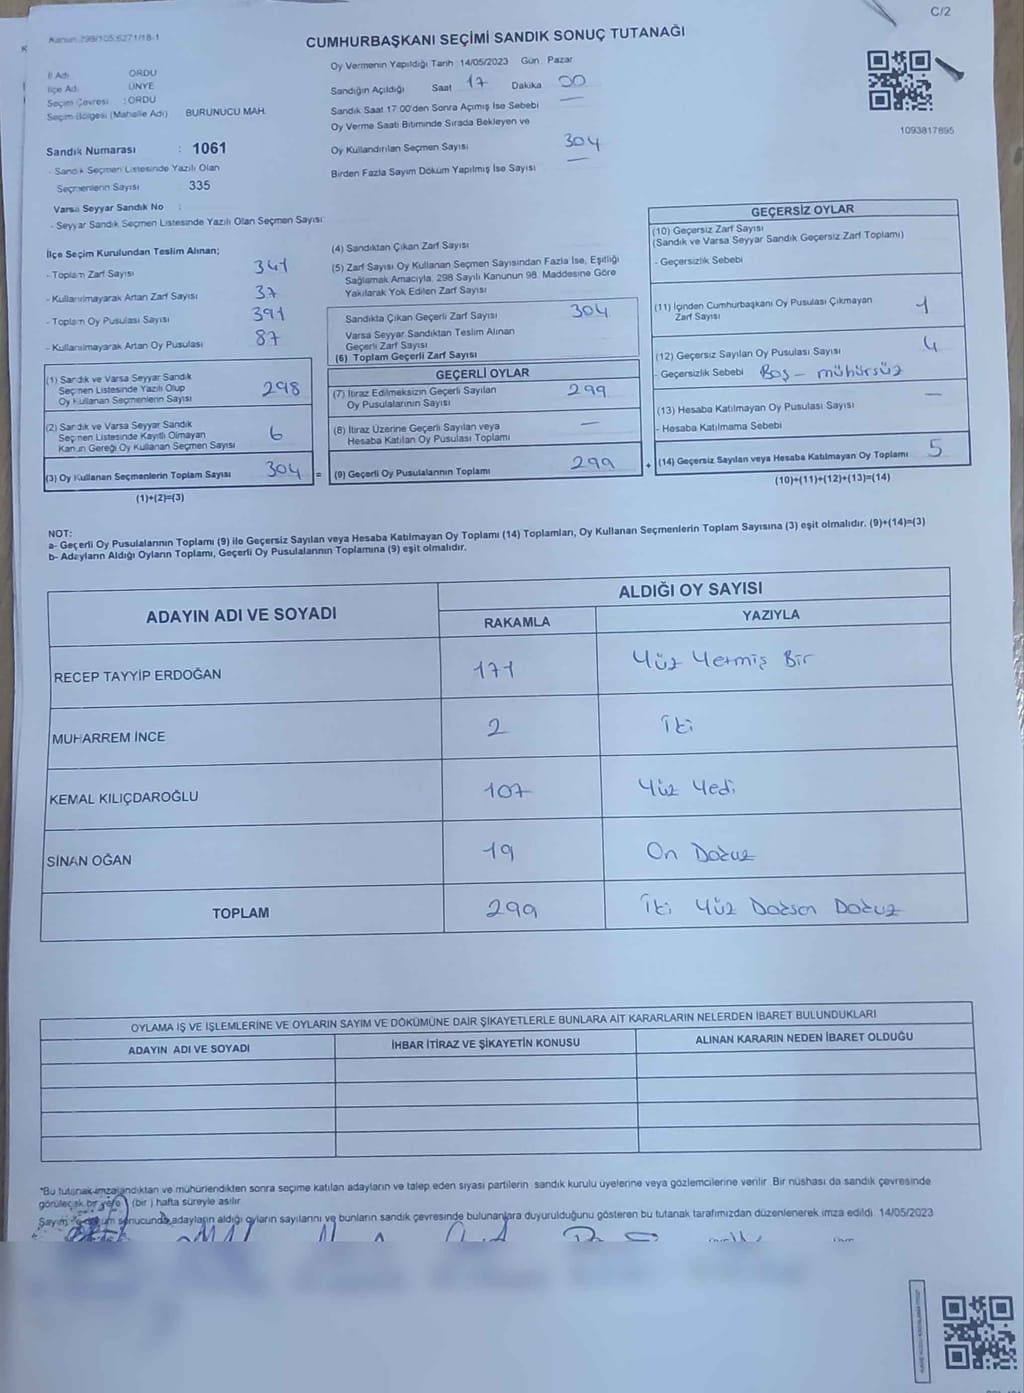 C/2
Kanun 298/105:6271/18-1
CUMHURBAŞKANI SEÇİMİ SANDIK SONUÇ TUTANAĞI
İl Adı ORDU
İlçe Adı ÜNYE
Seçim Çevresi : ORDU
Seçim Bölgesi (Mahalle Adı) BURUNUCU MAH.
Sandık Numarası : 1061
- Sandık Seçmen Listesinde Yazılı Olan
Seçmenlerin Sayısı 335
Varsa Seyyar Sandık No :
- Seyyar Sandık Seçmen Listesinde Yazılı Olan Seçmen Sayısı
Oy Vermenin Yapıldığı Tarih :14/05/2023 Gün Pazar
Sandığın Açıldığı Saat 17 Dakika 00
Sandık Saat 17:00'den Sonra Açımış İse Sebebi —
Oy Verme Saati Bitiminde Sırada Bekleyen ve
Oy Kullandırılan Seçmen Sayısı 304
Birden Fazla Sayım Döküm Yapılmış İse Sayısı —
1093817895
İlçe Seçim Kurulundan Teslim Alınan;
- Toplam Zarf Sayısı 341
- Kullanılmayarak Artan Zarf Sayısı 37
- Toplam Oy Pusulası Sayısı 391
- Kullanılmayarak Artan Oy Pusulası 87
(1) Sandık ve Varsa Seyyar Sandık
Seçmen Listesinde Yazılı Olup
Oy Kullanan Seçmenlerin Sayısı 298
(2) Sandık ve Varsa Seyyar Sandık
Seçmen Listesinde Kayıtlı Olmayan
Kanun Gereği Oy Kullanan Seçmen Sayısı 6
(3) Oy Kullanan Seçmenlerin Toplam Sayısı 304 =
(1)+(2)=(3)
(4) Sandıktan Çıkan Zarf Sayısı
(5) Zarf Sayısı Oy Kullanan Seçmen Sayısından Fazla İse, Eşitliği
Sağlamak Amacıyla, 298 Sayılı Kanunun 98. Maddesine Göre
Yakılarak Yok Edilen Zarf Sayısı
Sandıkta Çıkan Geçerli Zarf Sayısı 304
Varsa Seyyar Sandıktan Teslim Alınan
Geçerli Zarf Sayısı
(6) Toplam Geçerli Zarf Sayısı
GEÇERLİ OYLAR
(7) İtiraz Edilmeksizin Geçerli Sayılan
Oy Pusulalarının Sayısı 299
(8) İtiraz Üzerine Geçerli Sayılan veya
Hesaba Katılan Oy Pusulası Toplamı —
(9) Geçerli Oy Pusulalarının Toplamı 299 +
GEÇERSİZ OYLAR
(10) Geçersiz Zarf Sayısı
(Sandık ve Varsa Seyyar Sandık Geçersiz Zarf Toplamı)
- Geçersizlik Sebebi
(11) İçinden Cumhurbaşkanı Oy Pusulası Çıkmayan
Zarf Sayısı 1
(12) Geçersiz Sayılan Oy Pusulası Sayısı 4
- Geçersizlik Sebebi Boş - mühürsüz
(13) Hesaba Katılmayan Oy Pusulası Sayısı —
- Hesaba Katılmama Sebebi
(14) Geçersiz Sayılan veya Hesaba Katılmayan Oy Toplamı 5
(10)+(11)+(12)+(13)=(14)
NOT:
a- Geçerli Oy Pusulalarının Toplamı (9) ile Geçersiz Sayılan veya Hesaba Katılmayan Oy Toplamı (14) Toplamları, Oy Kullanan Seçmenlerin Toplam Sayısına (3) eşit olmalıdır. (9)+(14)=(3)
b- Adayların Aldığı Oyların Toplamı, Geçerli Oy Pusulalarının Toplamına (9) eşit olmalıdır.
ADAYIN ADI VE SOYADI ALDIĞI OY SAYISI
RAKAMLA YAZIYLA
RECEP TAYYİP ERDOĞAN 171 Yüz Yetmiş Bir
MUHARREM İNCE 2 İki
KEMAL KILIÇDAROĞLU 107 Yüz Yedi
SİNAN OĞAN 19 On Dokuz
TOPLAM 299 İki Yüz Doksan Dokuz
OYLAMA İŞ VE İŞLEMLERİNE VE OYLARIN SAYIM VE DÖKÜMÜNE DAİR ŞİKAYETLERLE BUNLARA AİT KARARLARIN NELERDEN İBARET BULUNDUKLARI
ADAYIN ADI VE SOYADI İHBAR İTİRAZ VE ŞİKAYETİN KONUSU ALINAN KARARIN NEDEN İBARET OLDUĞU
*Bu tutanak imzalandıktan ve mühürlendikten sonra seçime katılan adayların ve talep eden siyasi partilerin sandık kurulu üyelerine veya gözlemcilerine verilir. Bir nüshası da sandık çevresinde
görülecek bir yere (bir ) hafta süreyle asılır.
Sayım döküm sonucunda adayların aldığı oyların sayılarını ve bunların sandık çevresinde bulunanlara duyurulduğunu gösteren bu tutanak tarafımızdan düzenlenerek imza edildi. 14/05/2023